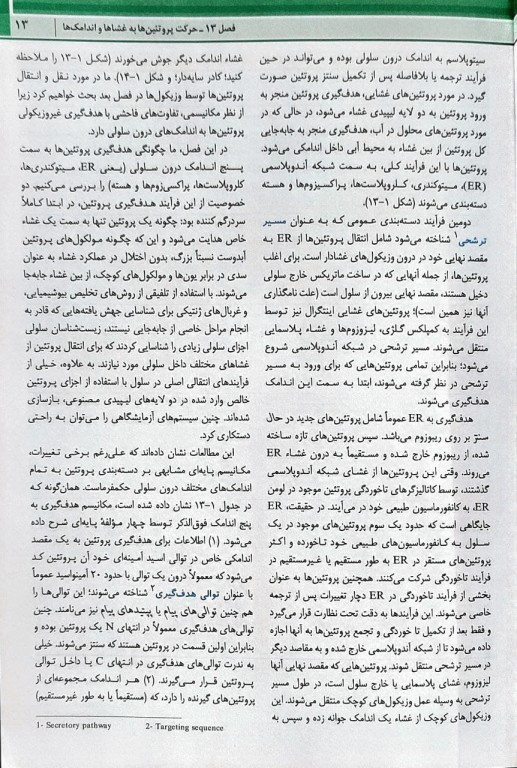 فصل ۱۳ ـ حرکت پروتئین‌ها به غشاها و اندامک‌ها ۱۳
سیتوپلاسم به اندامک درون سلولی بوده و می‌تواند در حین
فرآیند ترجمه یا بلافاصله پس از تکمیل سنتز پروتئین صورت
گیرد. در مورد پروتئین‌های غشایی، هدف‌گیری پروتئین منجر به
ورود پروتئین به دو لایه لیپیدی غشاء می‌شود، در حالی که در
مورد پروتئین‌های محلول در آب، هدف‌گیری منجر به جابه‌جایی
کل پروتئین از بین غشاء به محیط آبی داخل اندامکی می‌شود.
پروتئین‌ها با این فرآیند کلی، به سمت شبکه آندوپلاسمی
(ER)، میتوکندری، کلروپلاست‌ها، پراکسیزوم‌ها و هسته
دسته‌بندی می‌شوند (شکل ۱-۱۳).
دومین فرآیند دسته‌بندی عمومی که به عنوان مسیر
ترشحی۱ شناخته می‌شود شامل انتقال پروتئین‌ها از ER به
مقصد نهایی خود در درون وزیکول‌های غشادار است. برای اغلب
پروتئین‌ها، از جمله آنهایی که در ساخت ماتریکس خارج سلولی
دخیل هستند، مقصد نهایی بیرون از سلول است (علت نامگذاری
آنها نیز همین است)؛ پروتئین‌های غشایی اینتگرال نیز توسط
این فرآیند به کمپلکس گلژی، لیزوزوم‌ها و غشاء پلاسمایی
منتقل می‌شوند. مسیر ترشحی در شبکه آندوپلاسمی شروع
می‌شود؛ بنابراین تمامی پروتئین‌هایی که برای ورود به مسیر
ترشحی در نظر گرفته می‌شوند، ابتدا به سمت این اندامک
هدف‌گیری می‌شوند.
هدف‌گیری به ER عموماً شامل پروتئین‌های جدید در حال
سنتز بر روی ریبوزوم می‌باشد. سپس پروتئین‌های تازه ساخته
شده، از ریبوزوم خارج شده و مستقیماً به درون غشاء ER
می‌روند. وقتی این پروتئین‌ها از غشای شبکه آندوپلاسمی
گذشتند، توسط کاتالیزگرهای تاخوردگی پروتئین موجود در لومن
ER، به کانفورماسیون طبیعی خود در می‌آیند. در حقیقت، ER
جایگاهی است که حدود یک سوم پروتئین‌های موجود در یک
سلول به کانفورماسیون‌های طبیعی خود تاخورده و اکثر
پروتئین‌های مستقر در ER به طور مستقیم یا غیرمستقیم در
فرآیند تاخوردگی شرکت می‌کنند. همچنین پروتئین‌ها به عنوان
بخشی از فرآیند تاخوردگی در ER دچار تغییرات پس از ترجمه
خاصی می‌شوند. این فرآیندها به دقت تحت نظارت قرار می‌گیرد
و فقط بعد از تکمیل تا خوردگی و تجمع پروتئین‌ها به آنها اجازه
داده می‌شود تا از شبکه آندوپلاسمی خارج شده و به مقاصد دیگر
در مسیر ترشحی منتقل شوند. پروتئین‌هایی که مقصد نهایی آنها
لیزوزوم، غشای پلاسمایی یا خارج سلول است، در طول مسیر
ترشحی به وسیله عمل وزیکول‌های کوچک منتقل می‌شوند. این
وزیکول‌های کوچک از غشاء یک اندامک جوانه زده و سپس به
غشاء اندامک دیگر جوش می‌خورند (شکل ۱-۱۳ را ملاحظه
کنید؛ کادر سایه‌دار؛ و شکل ۱-۱۴). ما در مورد نقل و انتقال
پروتئین‌ها توسط وزیکول‌ها در فصل بعد بحث خواهیم کرد زیرا
از نظر مکانیسمی، تفاوت‌های فاحشی با هدف‌گیری غیروزیکولی
پروتئین‌ها به اندامک‌های درون سلولی دارد.
در این فصل، ما چگونگی هدف‌گیری پروتئین‌ها به سمت
پنج اندامک درون سلولی (یعنی ER، میتوکندری‌ها،
کلروپلاست‌ها، پراکسی‌زوم‌ها و هسته) را بررسی می‌کنیم. دو
خصوصیت از این فرآیند هدف‌گیری پروتئین، در ابتدا کاملاً
سردرگم کننده بود: چگونه یک پروتئین تنها به سمت یک غشاء
خاص هدایت می‌شود و این که چگونه مولکول‌های پروتئین
آبدوست نسبتاً بزرگ، بدون اختلال در عملکرد غشاء به عنوان
سدی در برابر یون‌ها و مولکول‌های کوچک، از بین غشاء جابه‌جا
می‌شوند. با استفاده از تلفیقی از روش‌های تخلیص بیوشیمیایی،
و غربال‌های ژنتیکی برای شناسایی جهش یافته‌هایی که قادر به
انجام مراحل خاصی از جابه‌جایی نیستند، زیست‌شناسان سلولی
اجزای سلولی زیادی را شناسایی کردند که برای انتقال پروتئین از
غشاهای مختلف داخل سلولی مورد نیازند. به علاوه، خیلی از
فرآیندهای انتقالی اصلی در سلول با استفاده از اجزای پروتئین
خالص وارد شده در دو لایه‌های لیپیدی مصنوعی، بازسازی
شده‌اند. چنین سیستم‌های آزمایشگاهی را می‌توان به راحتی
دستکاری کرد.
این مطالعات نشان داده‌اند که علی‌رغم برخی تغییرات،
مکانیسم پایه‌ای مشابهی بر دسته‌بندی پروتئین به تمام
اندامک‌های مختلف درون سلولی حکمفرماست. همان‌گونه که
در جدول ۱-۱۳ نشان داده شده است، مکانیسم هدف‌گیری به
پنج اندامک فوق‌الذکر توسط چهار مؤلفهٔ پایه‌ای شرح داده
می‌شود. (۱) اطلاعات برای هدف‌گیری پروتئین به یک مقصد
اندامکی خاص در توالی اسید آمینه‌ای خود آن پروتئین کد
می‌شود که معمولاً درون یک توالی با حدود ۲۰ آمینواسید عموماً
با عنوان توالی هدف‌گیری۲ شناخته می‌شوند؛ این توالی‌ها را
هم چنین توالی‌های پیام یا پپتیدهای پیام نیز می‌نامند. چنین
توالی‌های هدف‌گیری معمولاً در انتهای N یک پروتئین بوده و
بنابراین اولین قسمت در پروتئین هستند که سنتز می‌شوند. خیلی
به ندرت توالی‌های هدف‌گیری در انتهای C یا داخل توالی
پروتئین قرار می‌گیرند. (۲) هر اندامک مجموعه‌ای از
پروتئین‌های گیرنده را دارد، که (مستقیماً یا به طور غیرمستقیم)
1- Secretory pathway 2- Targeting sequence